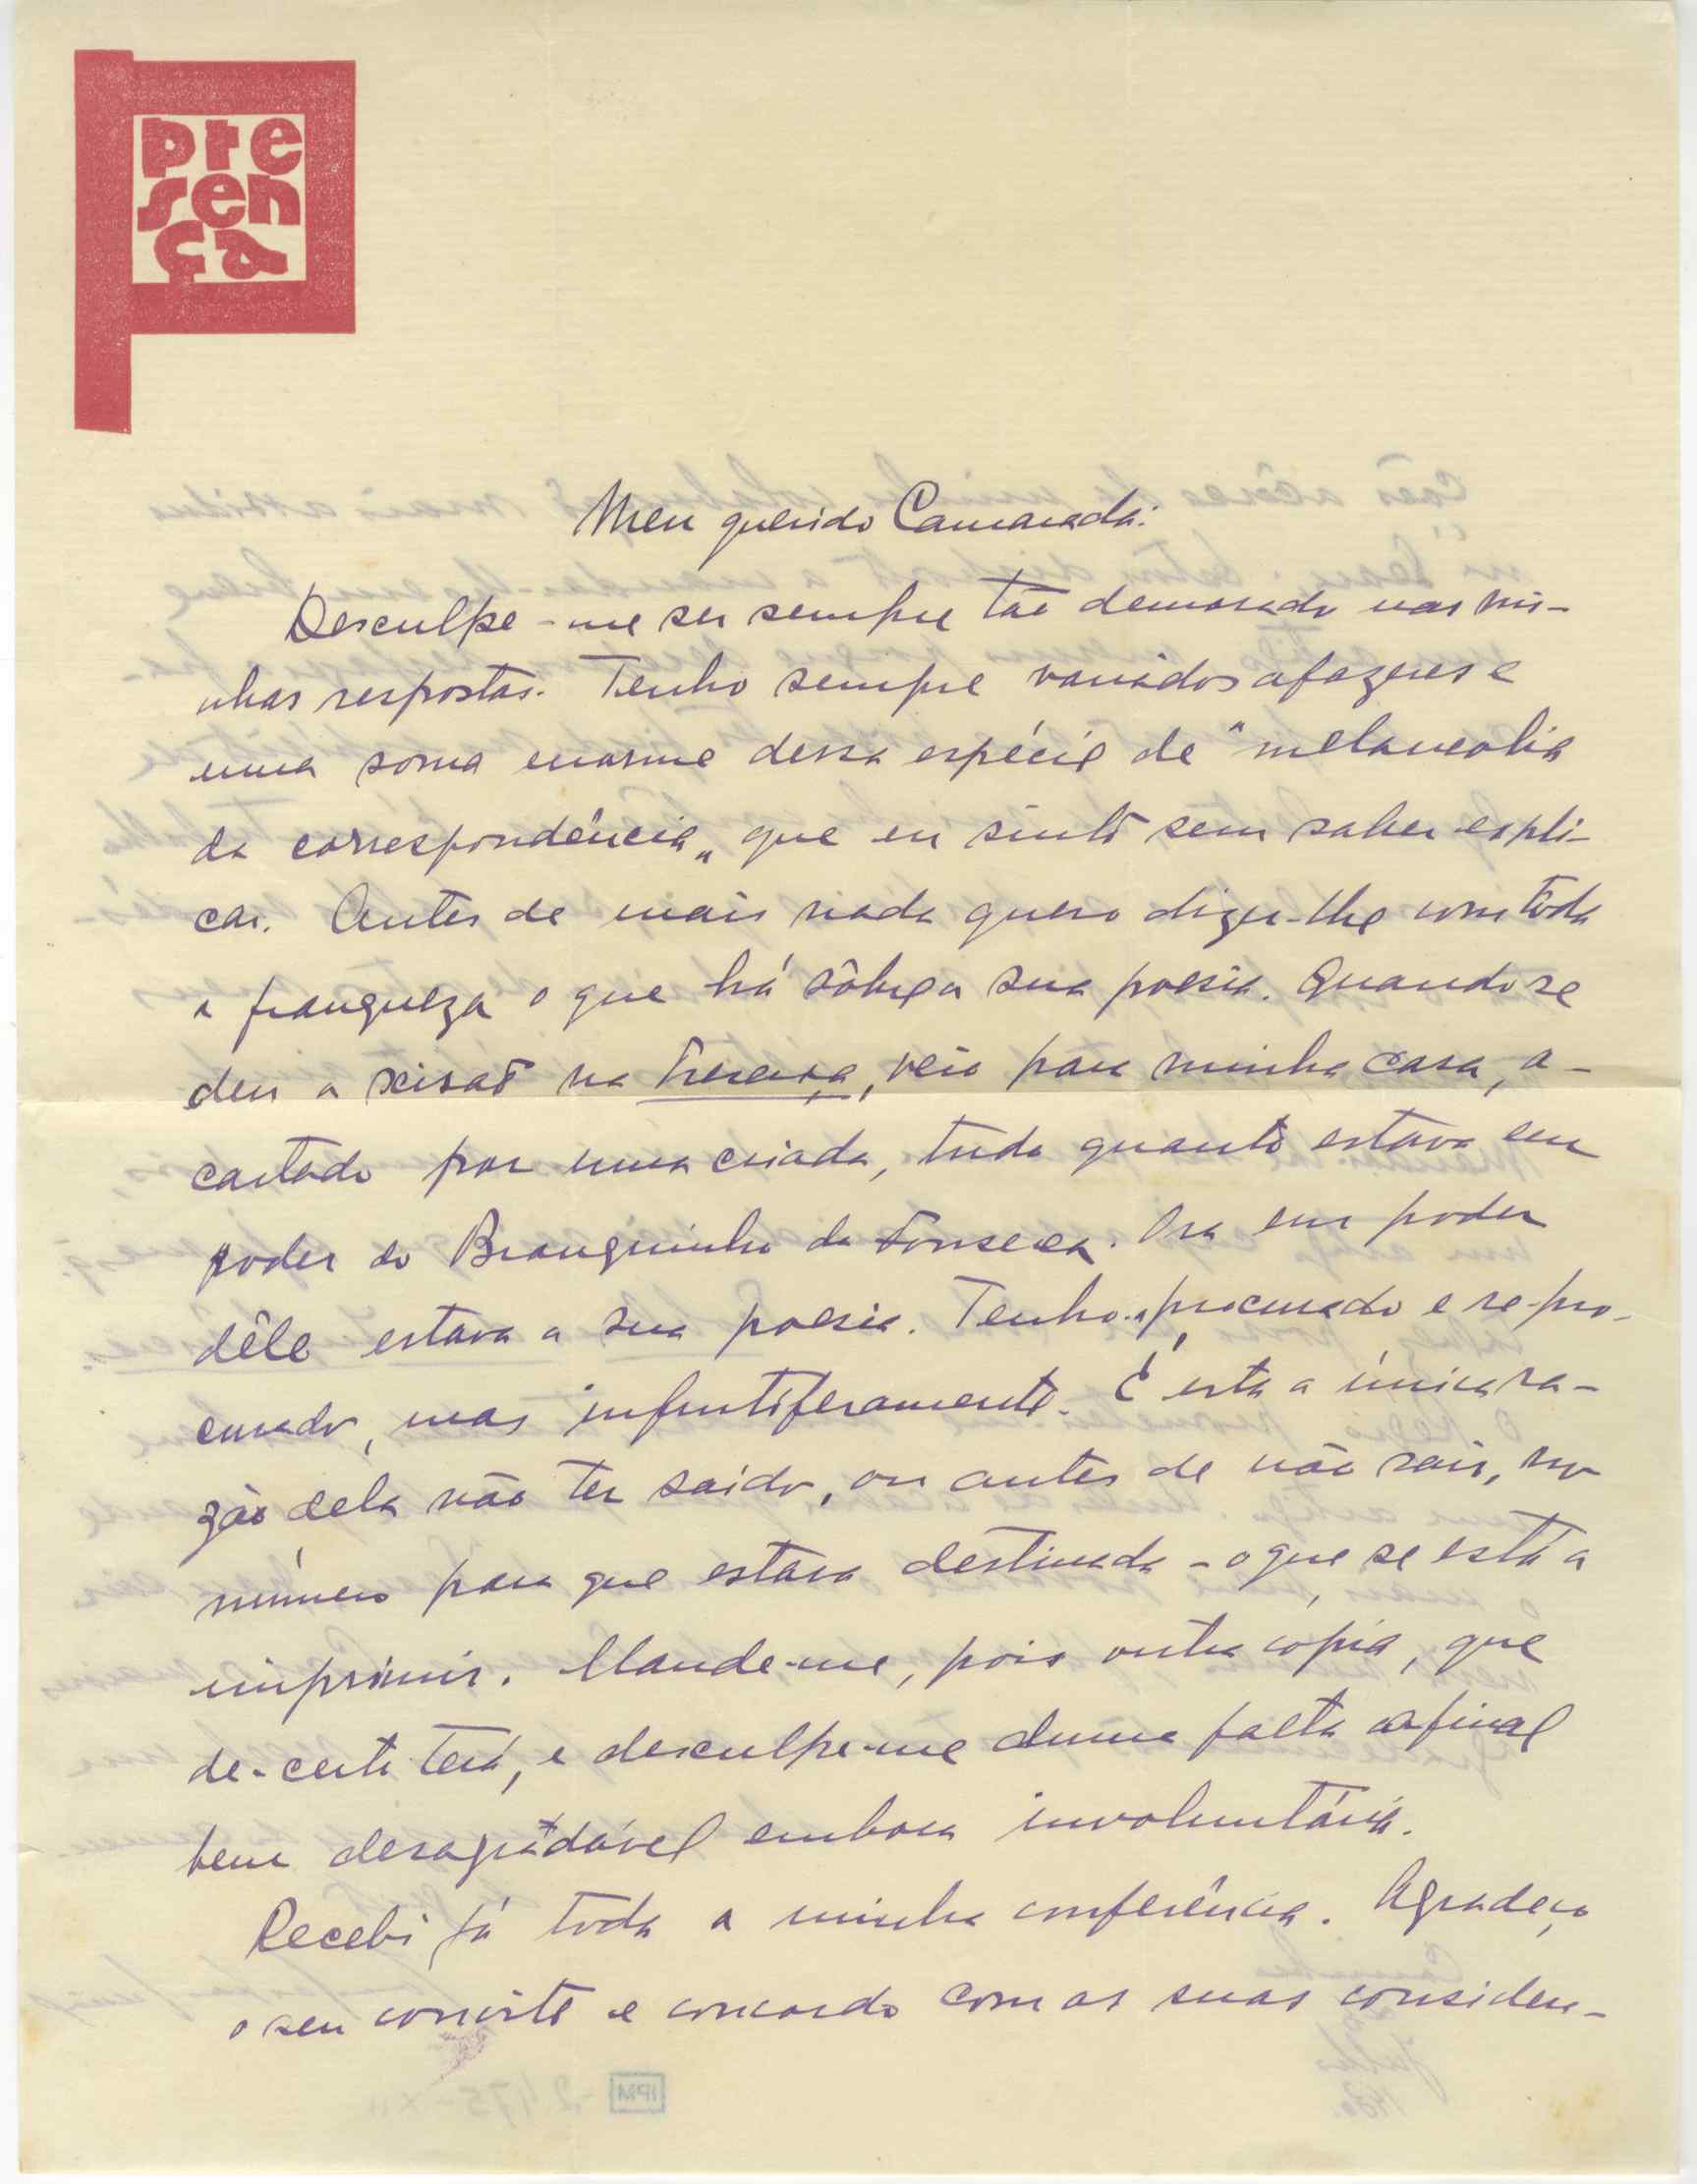 pre
sen
ça
Meu querido Camarada:
Desculpe-me ser sempre tão demorado nas mi-
nhas respostas. Tenho sempre variados afazeres e
uma soma enorme dessa espécie de "melancolia
da correspondência" que eu sinto sem saber expli-
car. Antes de mais nada quero dizer-lhe com toda
a franqueza o que há sôbre a sua poesia. Quando se
deu a scisão na Presença, veio para minha casa, a-
cartado por uma criada, tudo quanto estava em
poder do Branquinho da Fonseca. Ora em poder
dêle estava a sua poesia. Tenho-a procurado e re-pro-
curado, mas infrutiferamente. É esta a única ra-
zão dela não ter saído, ou antes de não sair, no
número para que estava destinada - o que se está a
imprimir. Mande-me, pois outra cópia, que
de-certo terá, e desculpe-me duma falta afinal
bem desagradável embora involuntária.
Recebi já toda a minha conferência. Agradeço
o seu convite e concordo com as suas considera-
IPM -2475-XII